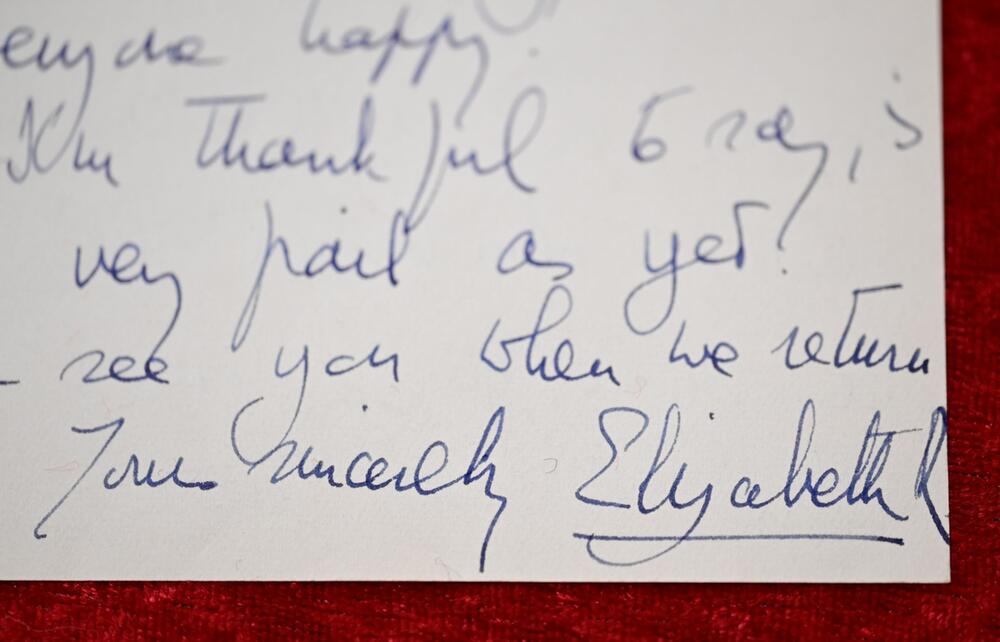 happy.
I'm thankful to say, is
very pail as yet!
see you when we return
Yours Sincerely Elizabeth R